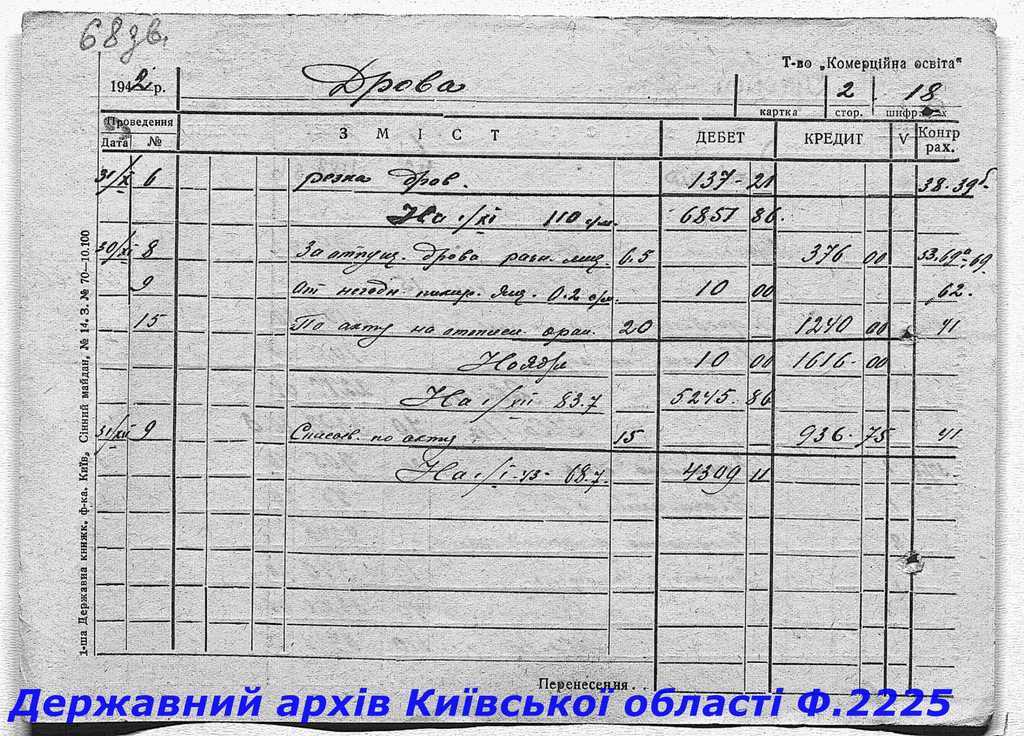 68 зв.
Т-во „Комерційна освіта"
1942 р. Дрова 2 18
картка стор. шифр
Проведення З М І С Т ДЕБЕТ КРЕДИТ V Контр рах.
Дата №
31/X 6 резка дров. 137-21 38.39б.
На 1/XI 110 с/м. 6851 86.
30/XI 8 За отпущ. дрова разн. лиц. 6.5 376 00 53.69а.69
9 От негодн. 0.2 с/м. 10 00 62.
15 По акту на 20 1240 00 41
Ноября 10 00 1616-00
На 1/XII 83.7 5245.86
31/XII 9 по акту 15 936-75 41
На 1/I-43- 68.7 4309 11
Перенесення . .
1-ша Державна книжк. ф-ка. Київ, Сінний майдан, № 14. З. № 70—10.100
Державний архів Київської області Ф.2225